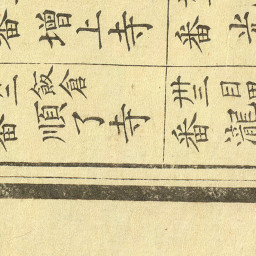 番 増上寺
番
三番 飯倉 順了寺
卅三番 目 瀧